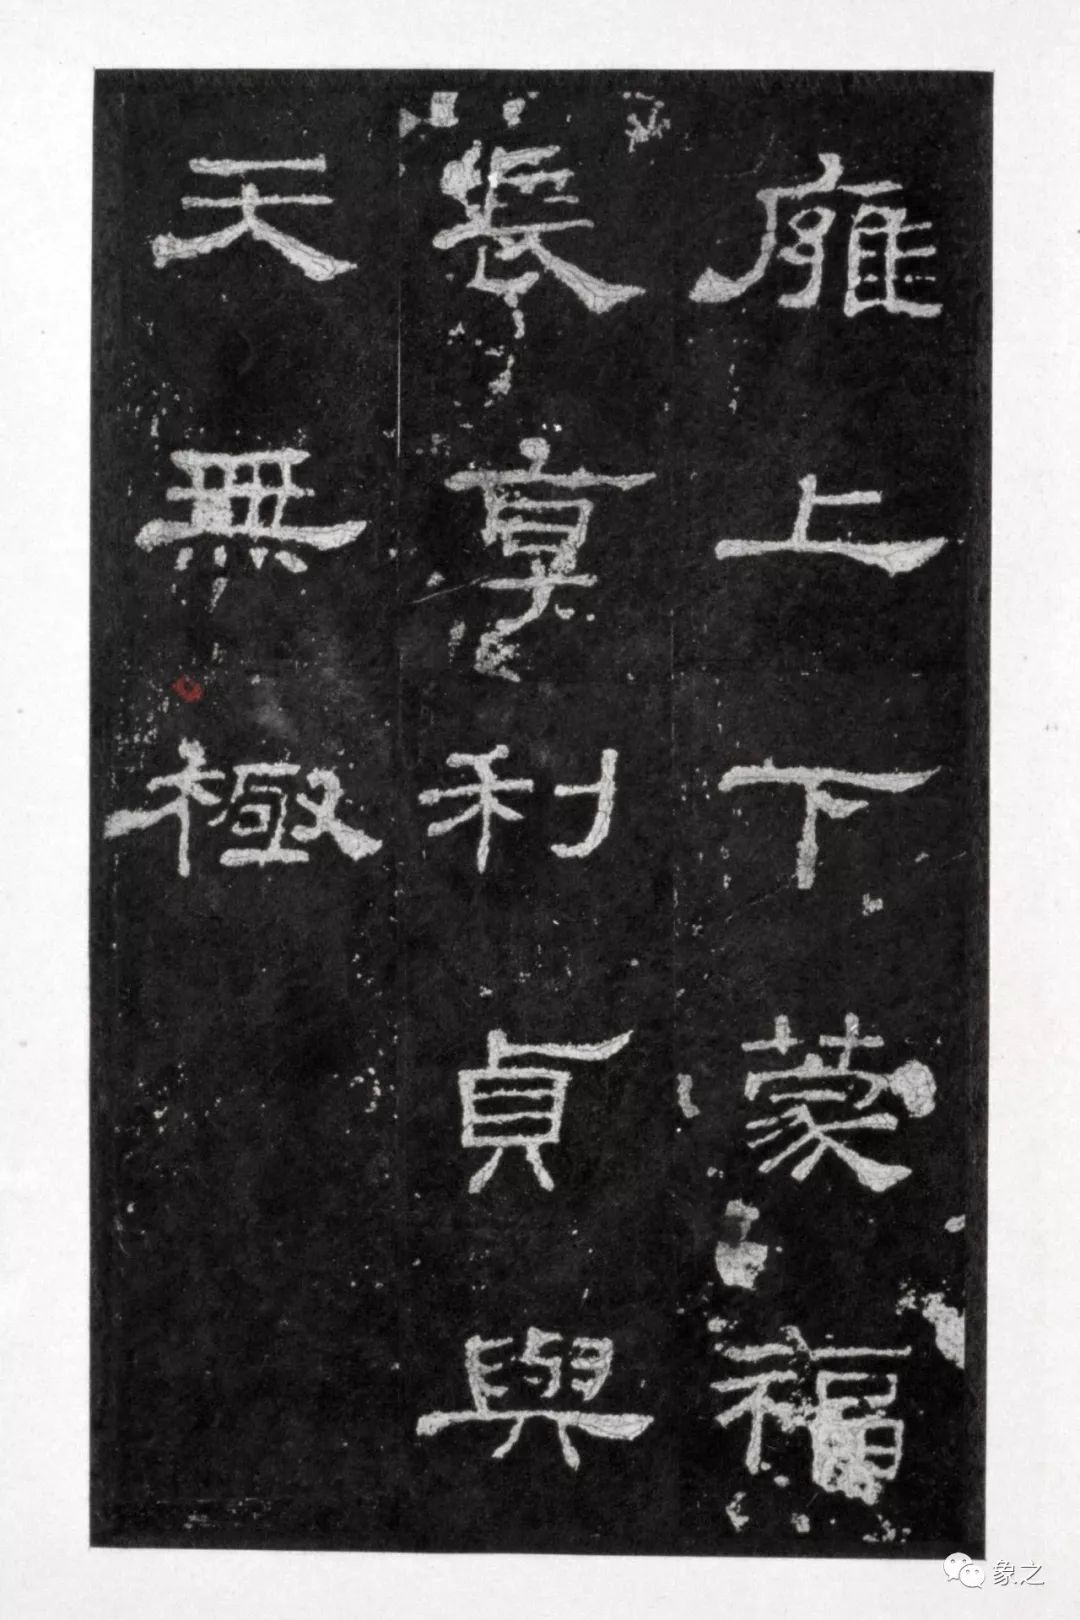 雍上下蒙福
長享利貞與
天無極
象之